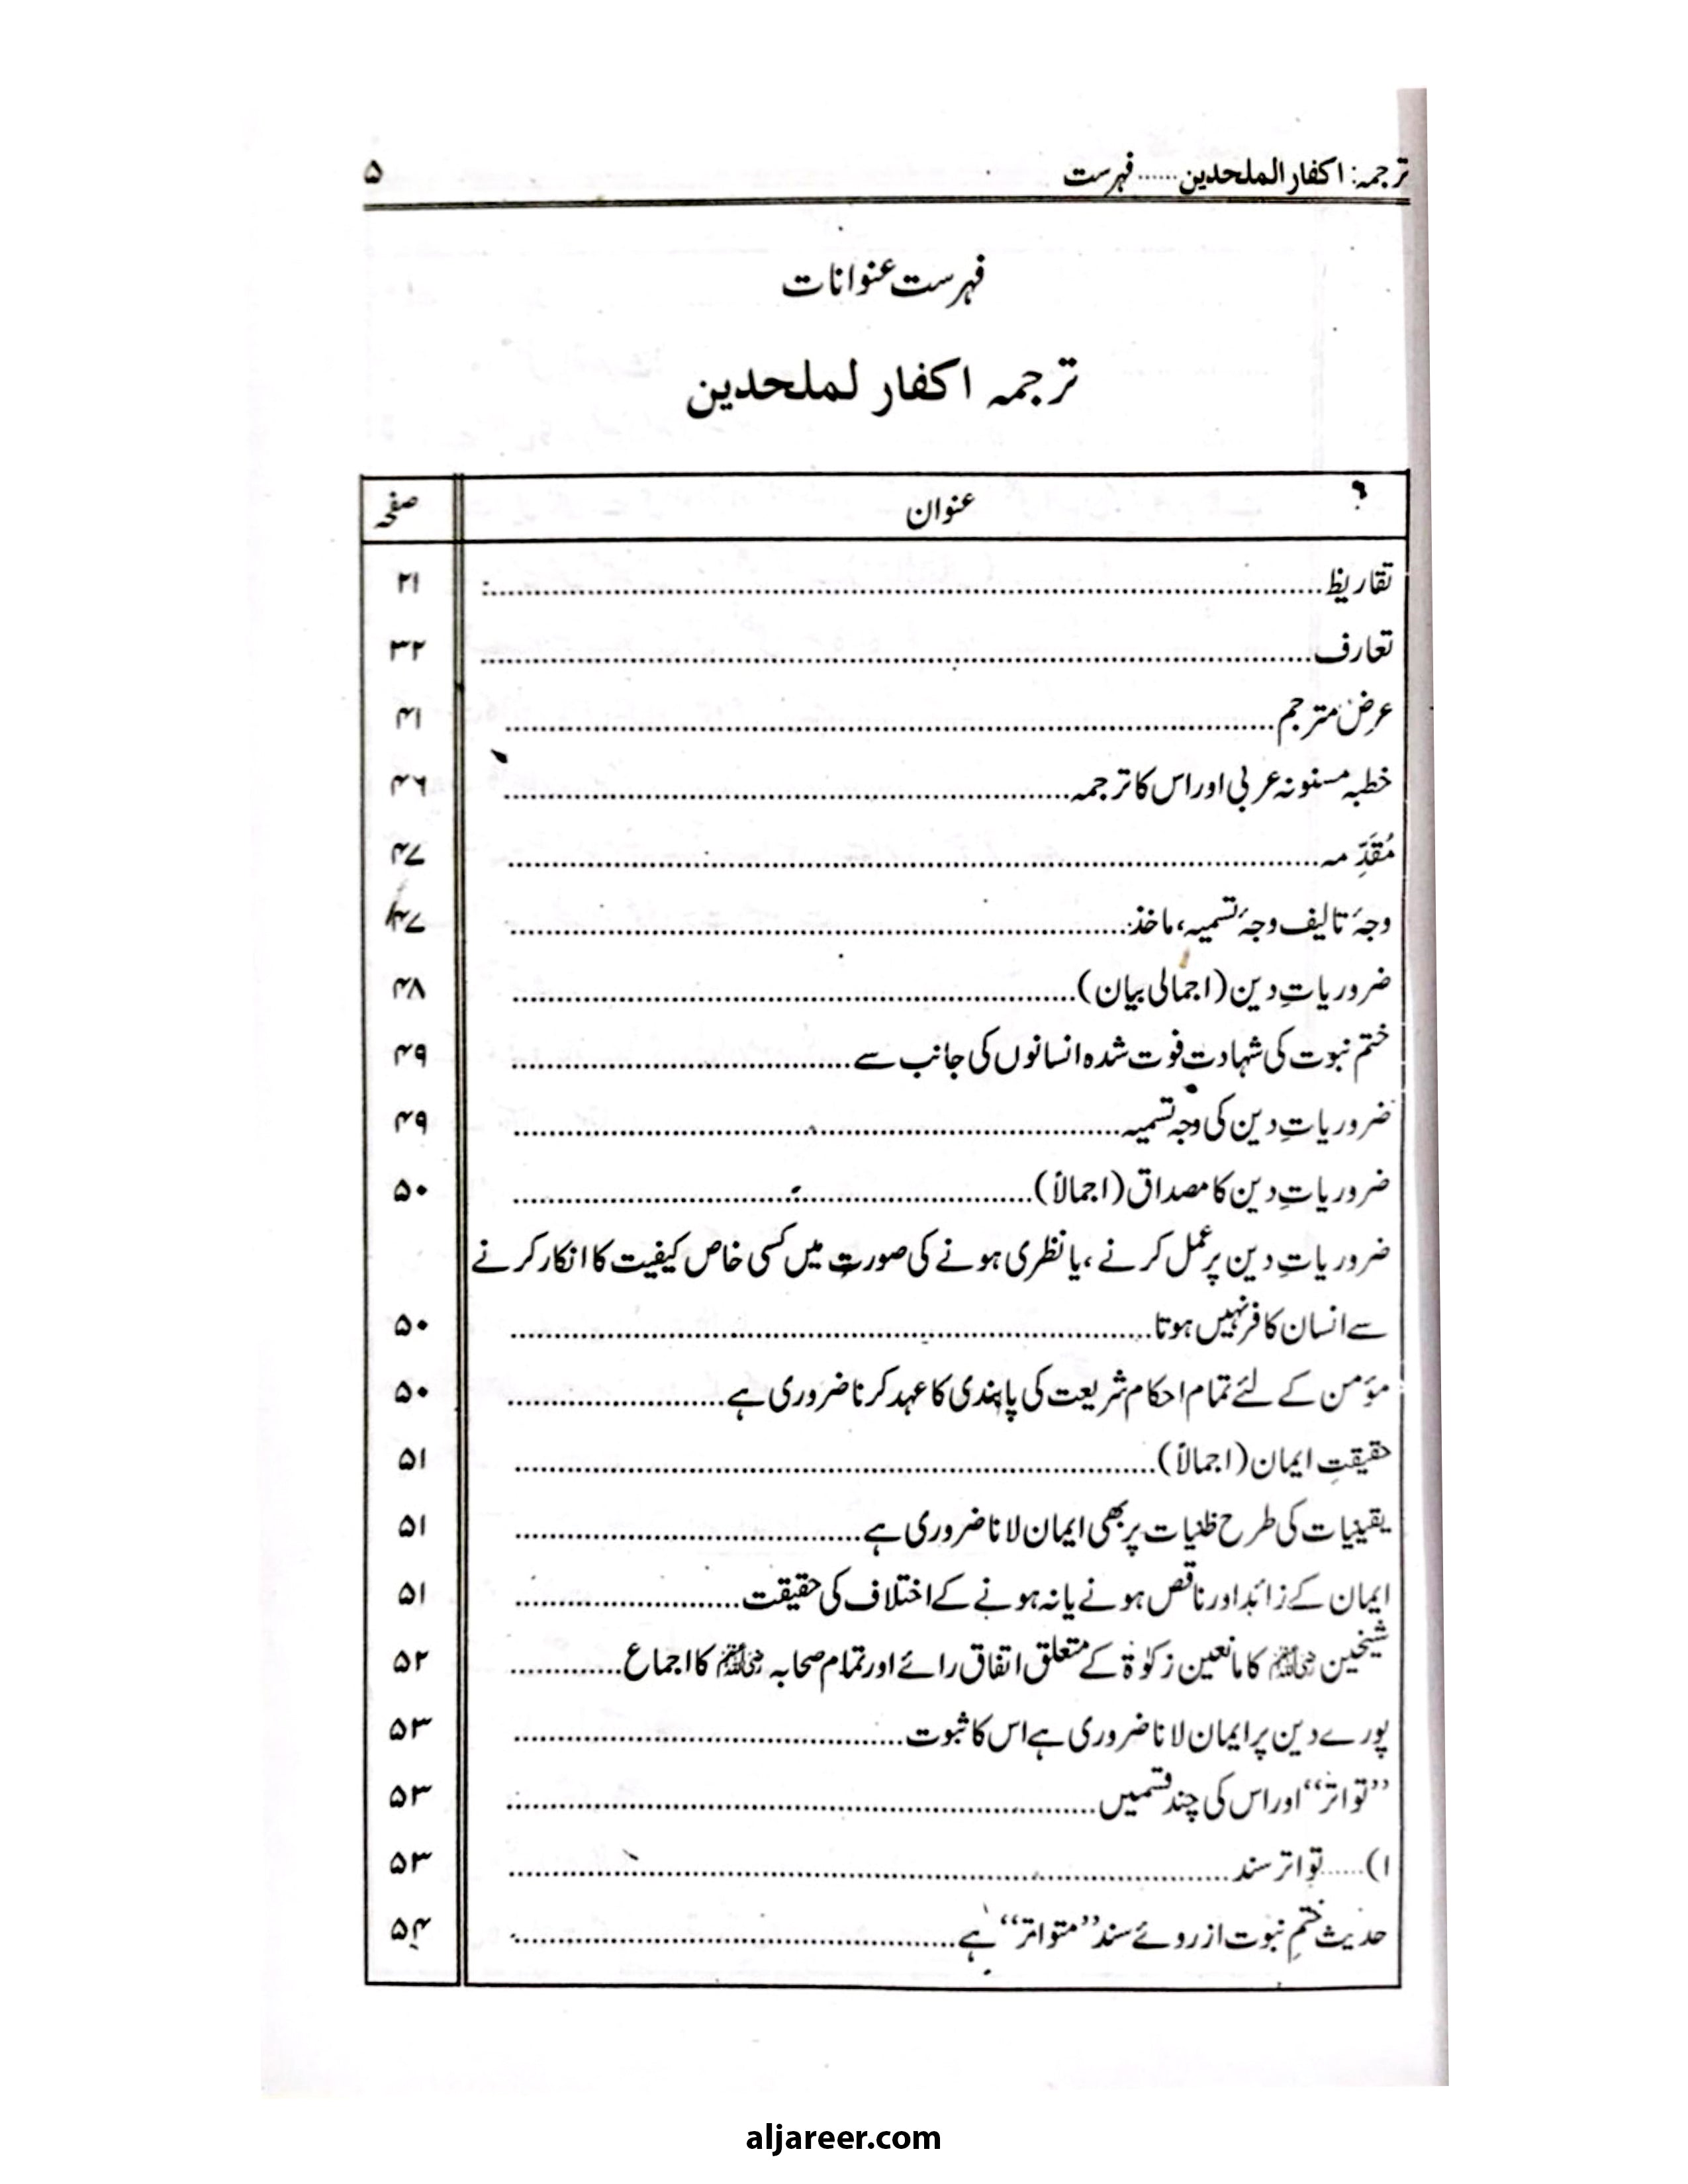 ترجمہ: اکفار الملحدین......فہرست ۵
فہرست عنوانات
ترجمہ اکفار لملحدین
عنوان صفحہ
تقاریظ ۲۱
تعارف ۳۲
عرض مترجم ۴۱
خطبہ مسنونہ عربی اور اس کا ترجمہ ۴۶
مُقدِّمہ ۴۷
وجۂ تالیف وجۂ تسمیہ، ماخذ ۴۷
ضروریاتِ دین (اجمالی بیان) ۴۸
ختم نبوت کی شہادت فوت شدہ انسانوں کی جانب سے ۴۹
ضروریاتِ دین کی وجہ تسمیہ ۴۹
ضروریاتِ دین کا مصداق (اجمالاً) ۵۰
ضروریاتِ دین پر عمل کرنے، یا نظری ہونے کی صورت میں کسی خاص کیفیت کا انکار کرنے
سے انسان کافر نہیں ہوتا ۵۰
مؤمن کے لئے تمام احکام شریعت کی پابندی کا عہد کرنا ضروری ہے ۵۰
حقیقتِ ایمان (اجمالاً) ۵۱
یقینیات کی طرح ظنیات پر بھی ایمان لانا ضروری ہے ۵۱
ایمان کے زائد اور ناقص ہونے یا نہ ہونے کے اختلاف کی حقیقت ۵۱
شیخین کا مانعین زکوٰۃ کے متعلق اتفاق رائے اور تمام صحابہ کا اجماع ۵۲
پورے دین پر ایمان لانا ضروری ہے اس کا ثبوت ۵۳
”تواتر“ اور اس کی چند قسمیں ۵۳
۱)......تواتر سند ۵۳
حدیث ختمِ نبوت از روئے سند ”متواتر“ ہے ۵۴
aljareer.com